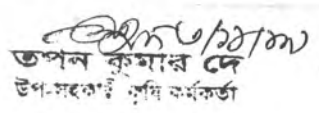 তপন কুমার দে
উপ-সহকারী কৃষি কর্মকর্তা